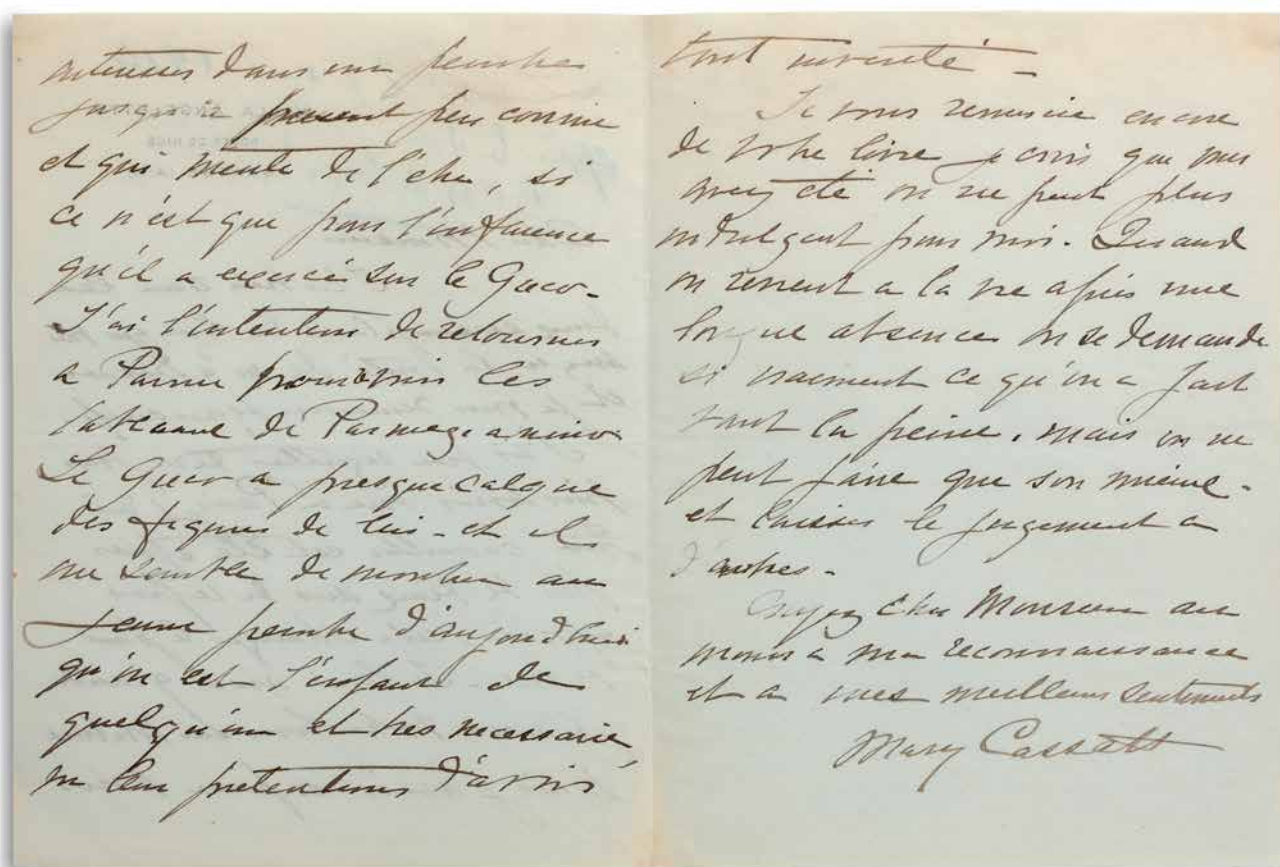 interesser dans un peintre
jusqu'a present peu connu
et qui merite de l'etre, si
ce n'est que pour l'influence
qu'il a exercé sur le Greco-
J'ai l'intention de retourner
a Parme pour voir les
tableaux de Parmegianino-
Le Greco a presque calque
des figures de lui - et il
me semble de montrer au
jeune peintre d'aujourdhui
qu'on est l'enfant de
quelqu'un est tres necessaire,
pretentions d'avoir
tout inventé -
Je vous remercie encore
de votre livre je crois que vous
avez été on ne peut plus
indulgent pour moi. Quand
on revient a la vie apres une
longue absence on se demande
si vraiment ce qu'on a fait
vaut la peine. mais on ne
peut faire que son mieux -
et laisser le jugement a
d'autres -
Croyez cher Monsieur au
moins a ma reconnaissance
et a mes meilleurs sentiments
Mary Cassatt